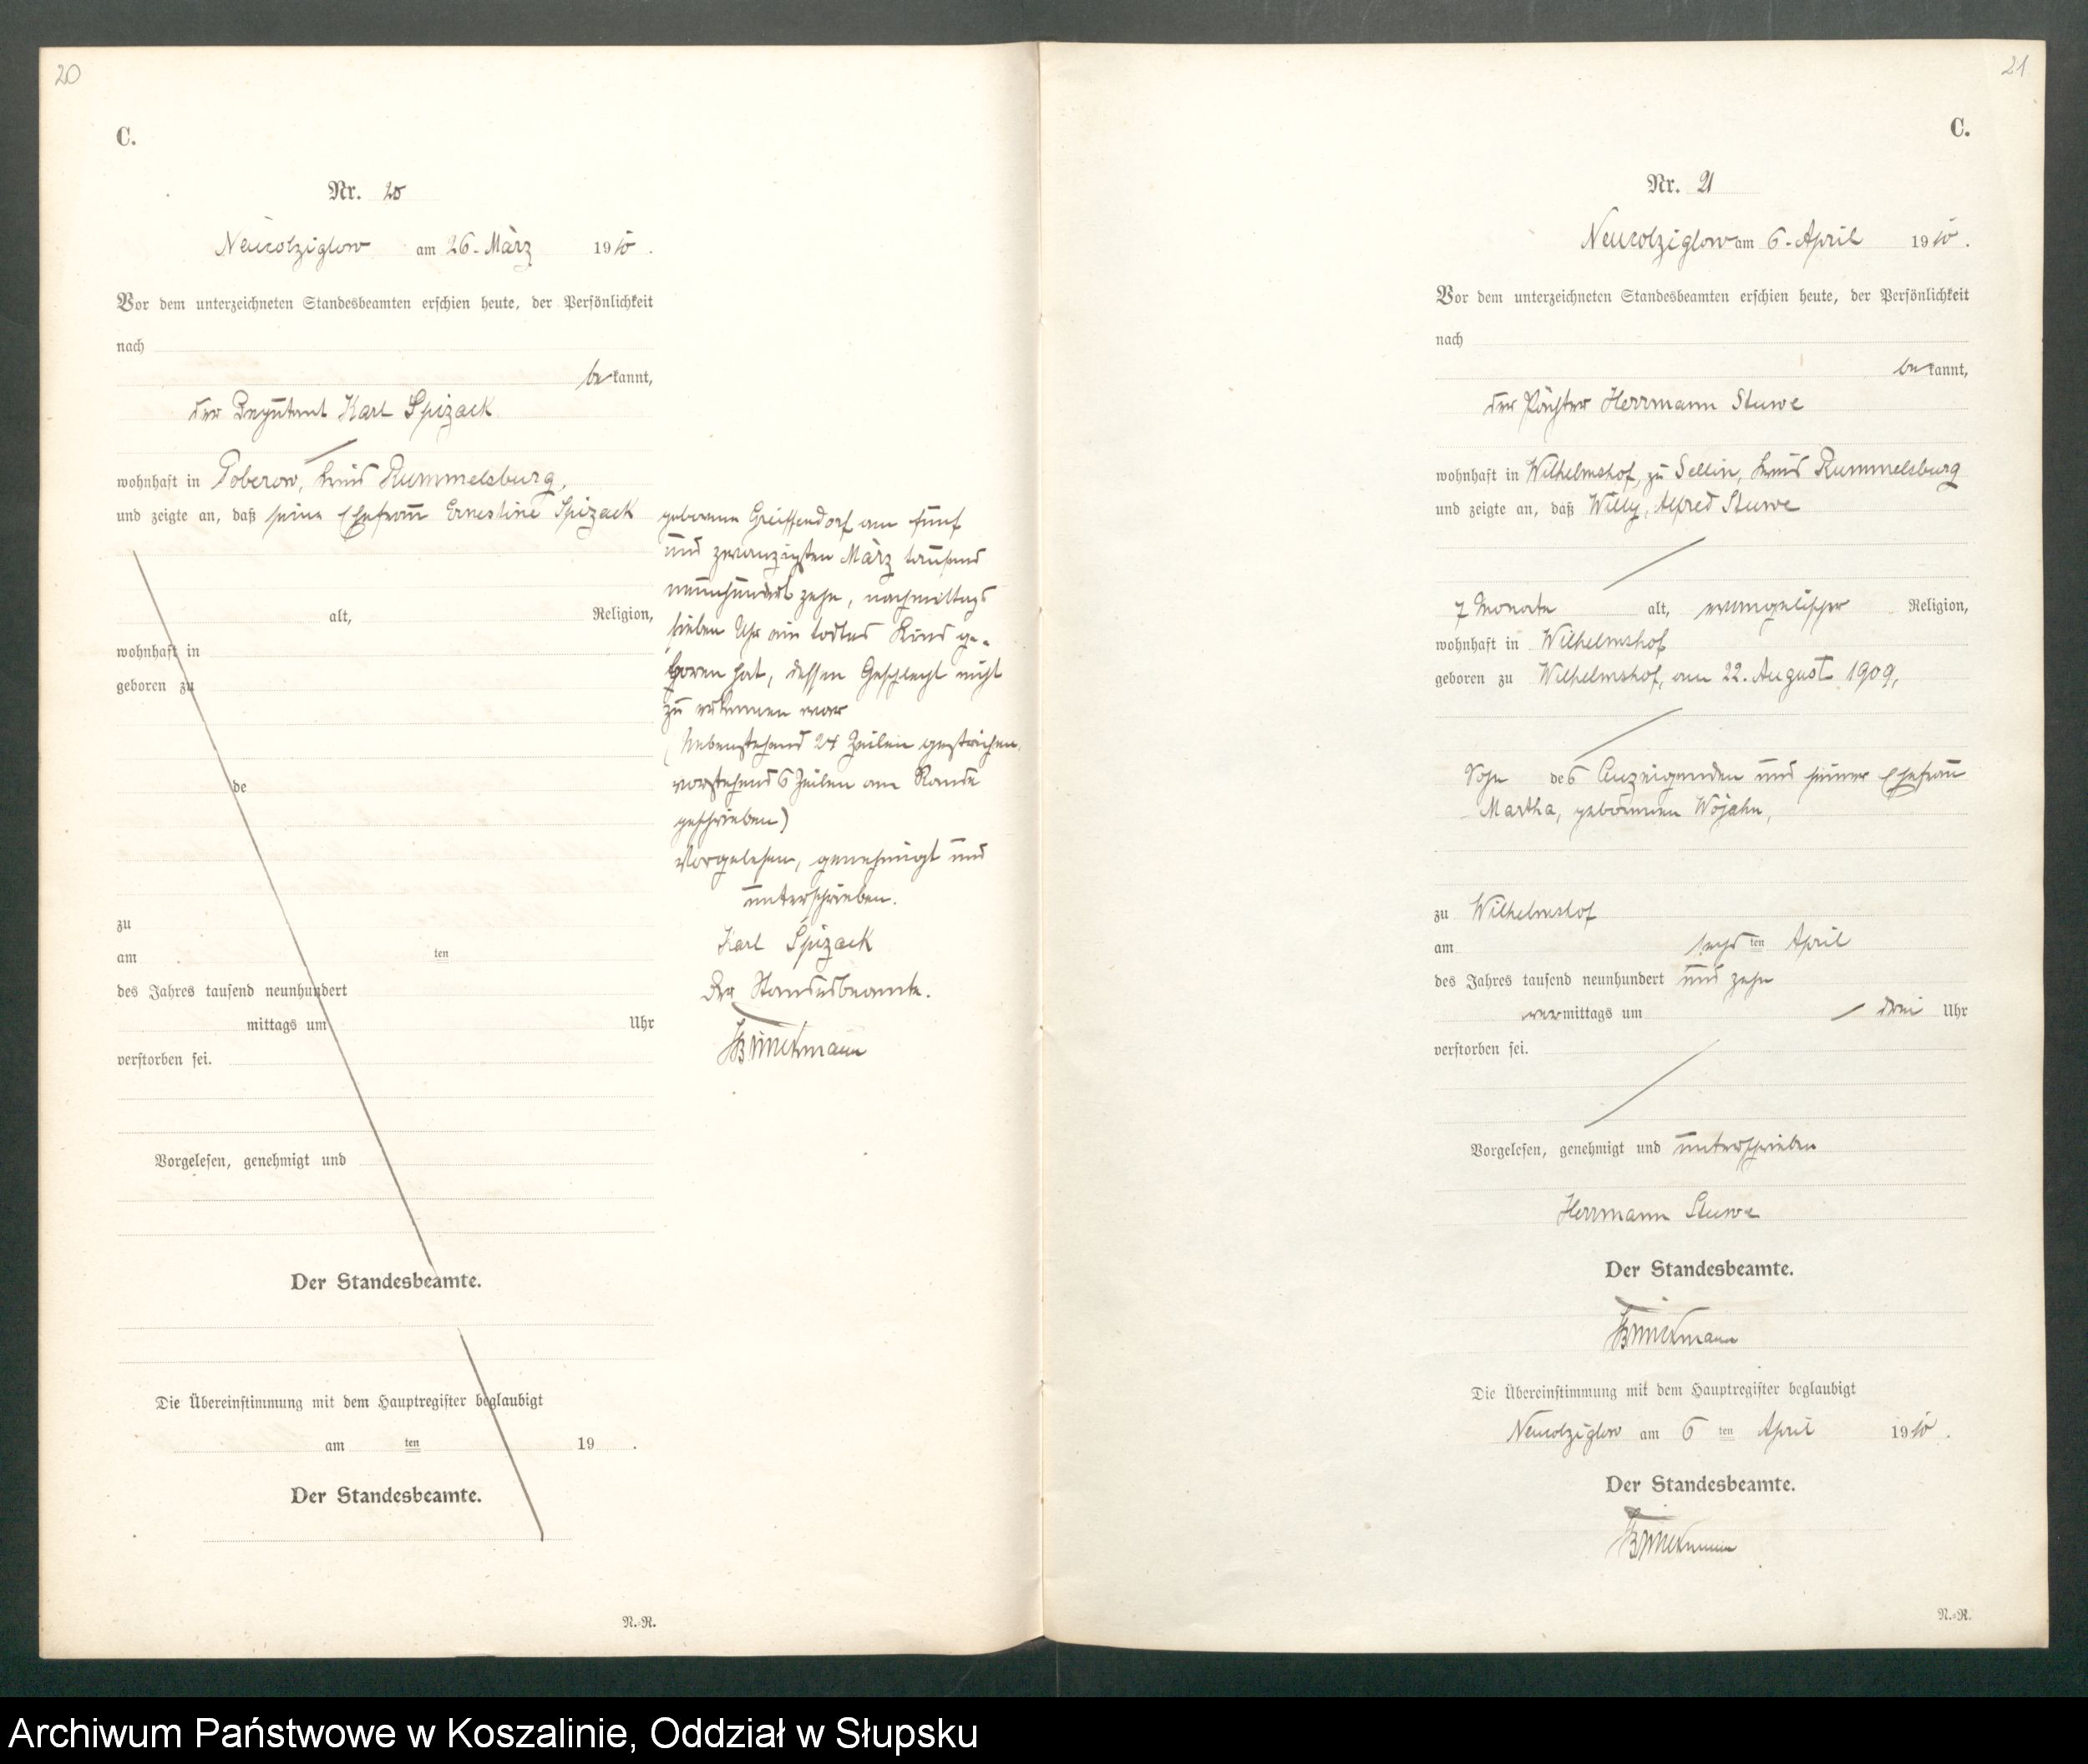 20
C.
Nr. 20
Neukolziglow am 26. März 1910.
Vor dem unterzeichneten Standesbeamten erschien heute, der Persönlichkeit
nach
bekannt,
der Deputant Karl Spizack
wohnhaft in Poberow, Kreis Rummelsburg,
und zeigte an, daß seine Ehefrau Ernestine Spizack
alt, Religion,
wohnhaft in
geboren zu
de
zu
am ten
des Jahres tausend neunhundert
mittags um Uhr
verstorben sei.
Vorgelesen, genehmigt und
Der Standesbeamte.
Die Übereinstimmung mit dem Hauptregister beglaubigt
am ten 19 .
Der Standesbeamte.
N.-R.
geborenen Greiffendorf am fünf
und zwanzigsten März tausend
neunhundert zehn, nachmittags
sieben Uhr ein todtes Kind ge-
boren hat, dessen Geschlecht nicht
zu erkennen war
(Nebenstehend 24 Zeilen gestrichen,
vorstehend 6 Zeilen am Rande
geschrieben)
Vorgelesen, genehmigt und
unterschrieben.
Karl Spizack
Der Standesbeamte.
21
C.
Nr. 21
Neukolziglow am 6. April 1910.
Vor dem unterzeichneten Standesbeamten erschien heute, der Persönlichkeit
nach
bekannt,
der Pächter Herrmann Stuwe
wohnhaft in Wilhelmshof, zu Sellin, Kreis Rummelsburg
und zeigte an, daß Willy, Alfred Stuwe
7 Monate alt, evangelischer Religion,
wohnhaft in Wilhelmshof
geboren zu Wilhelmshof, am 22. August 1909,
Sohn des Anzeigenden und seiner Ehefrau
Martha, geborenen Wojahn,
zu Wilhelmshof
am sechsten April
des Jahres tausend neunhundert und zehn
vormittags um drei Uhr
verstorben sei.
Vorgelesen, genehmigt und unterschrieben
Herrmann Stuwe
Der Standesbeamte.
Die Übereinstimmung mit dem Hauptregister beglaubigt
Neukolziglow am 6 ten April 1910.
Der Standesbeamte.
N.-R.
Archiwum Państwowe w Koszalinie, Oddział w Słupsku